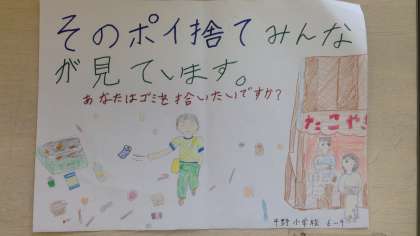 そのポイ捨てみんな
が見ています。
あなたはゴミを拾いたいですか?
たこやき
平野小学校 6-4